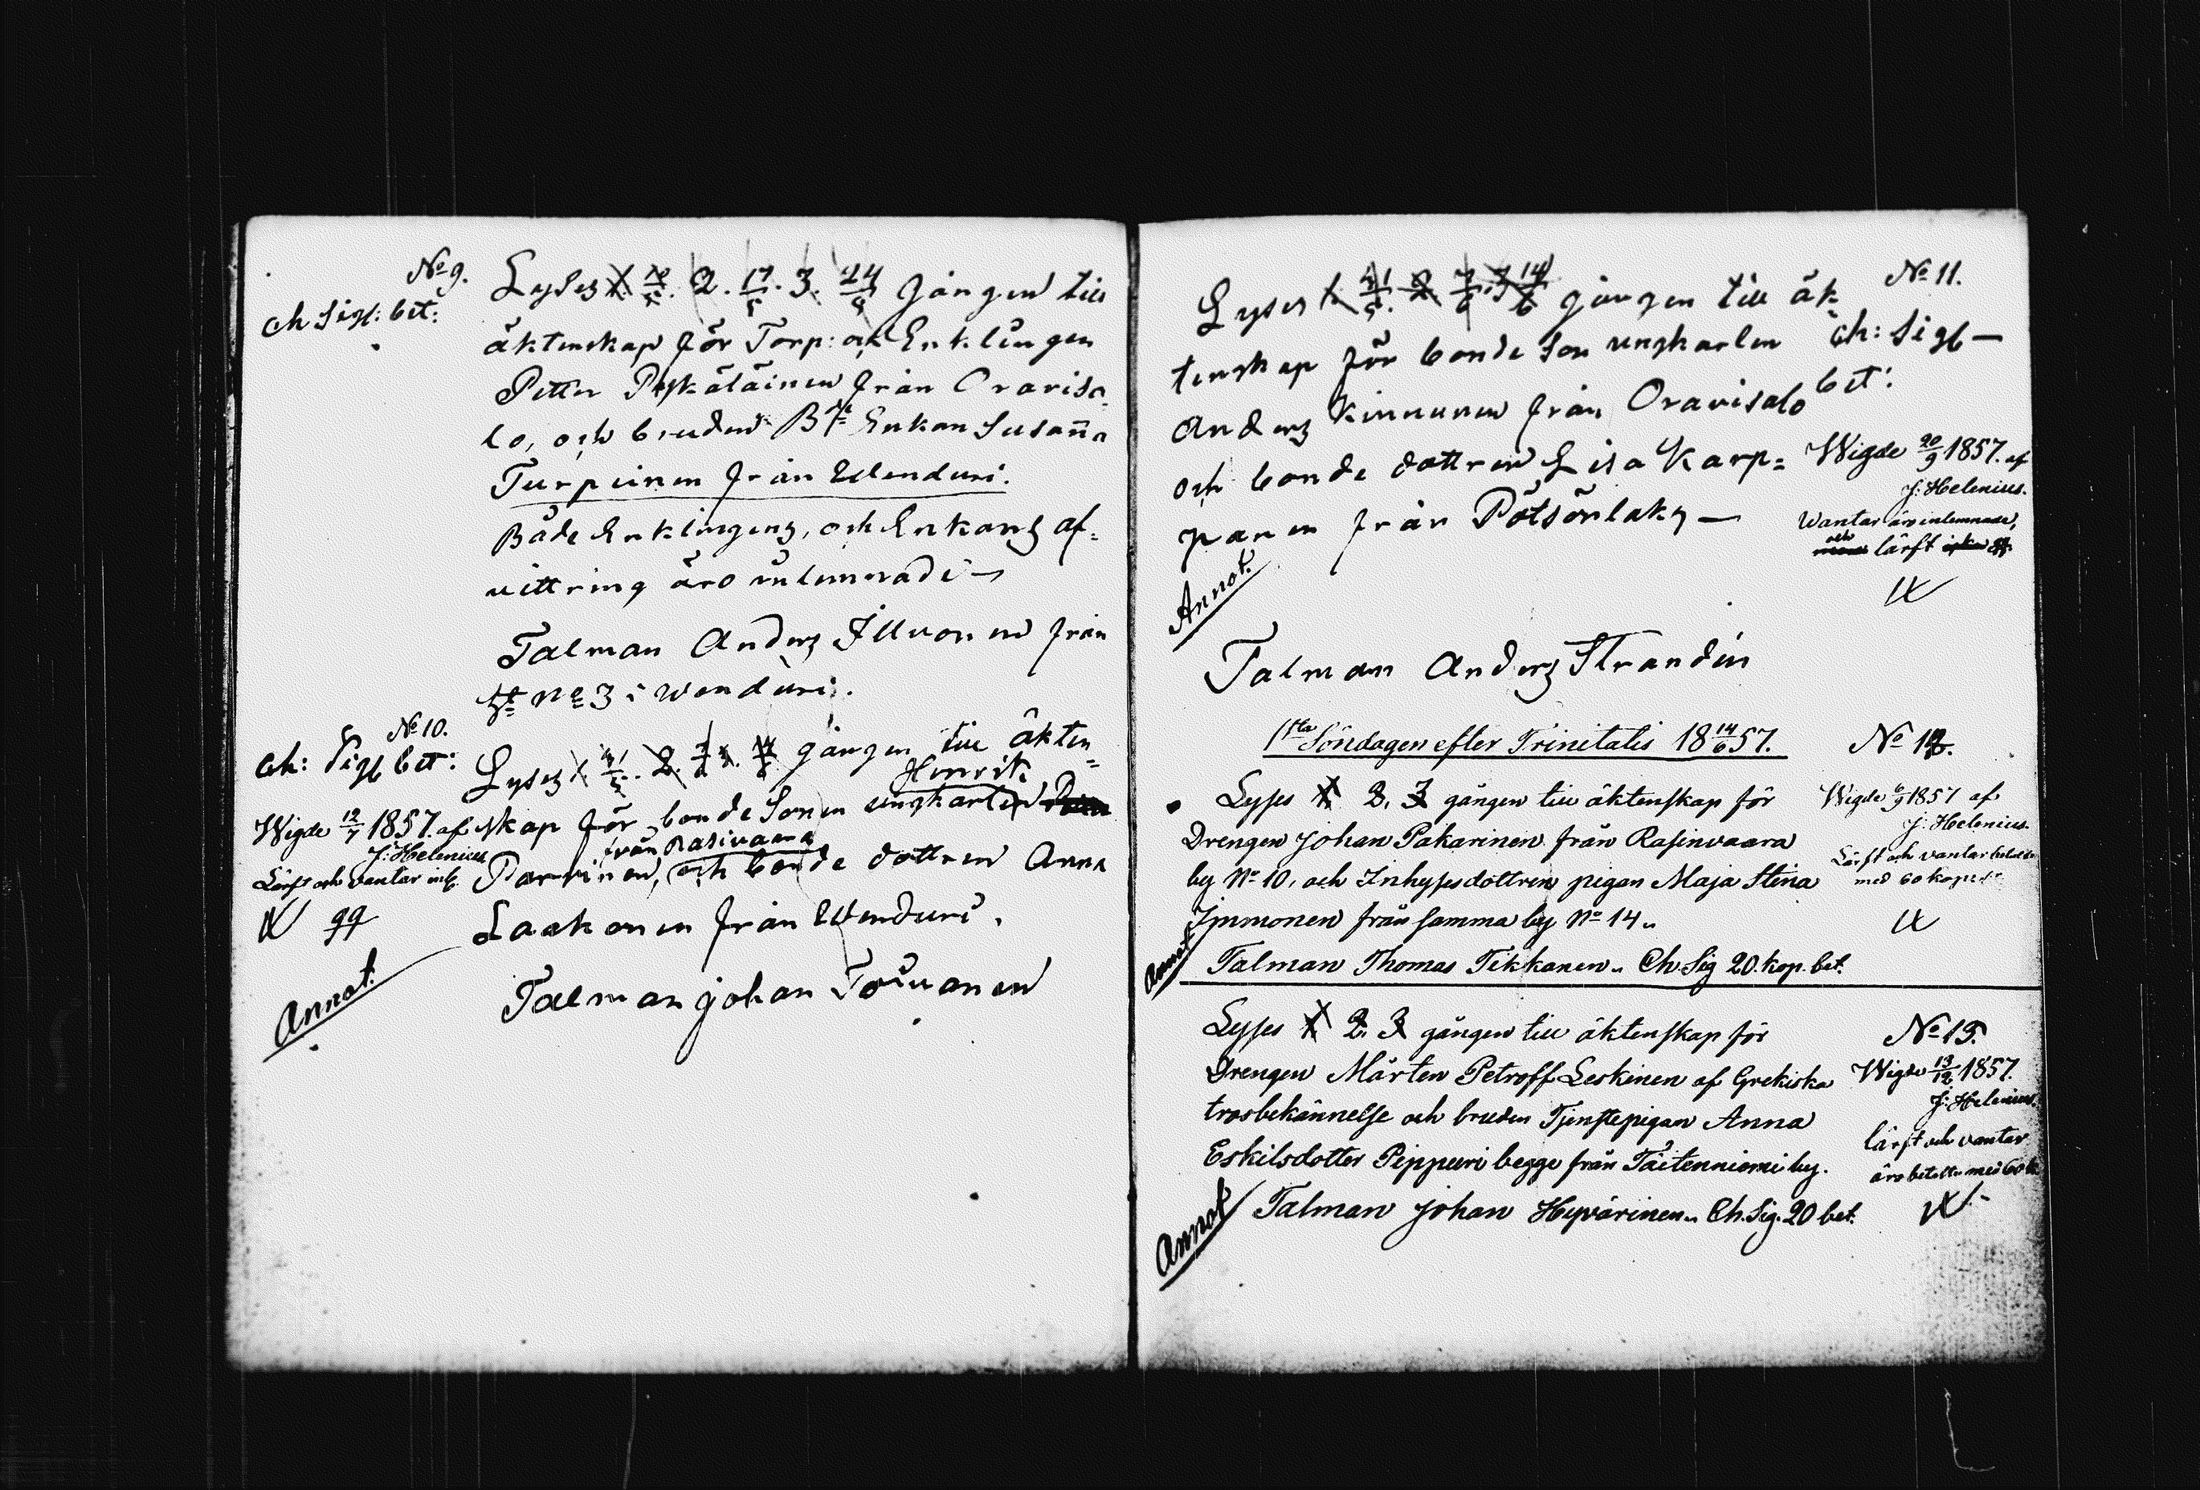 No 9.
Ch Sigl: bet:
Lyses 1. 10/5. 2. 17/5. 3. 24/5 gången till
äktenskap för Torp: och Enklingen
Petter Puskäläinen från Oraviso-
lo, och bruden B:de Enkan Susanna
Turpeinen från Wenduri.
Både Enklingens, och Enkans af-
vittring äro inlemnade —
Talman Anders Illuonen från
No 3 i Wenduri.
No 10.
Ch: Sigl bet:
Lyses 1. 31/5. 2. 7/6. 3. 14/6 gången till äkten-
Henrik
Wigde 12/7 1857. af
J: Helenius
Lärft och vantar inl.
skap för bonde Sonen ungkarlen
från Rasivaara
Parvinen, och bonde dottren Anna
Laakonen från Wenduri.
Annot.
Talman Johan Toivanen
No 11.
Lyses 1. 31/5. 2. 7/6. 3. 14/6 gången till äk-
Ch: Sigl —
bet:
tenskap för bonde Son ungkarlen
Anders Kinnunen från Oravisalo
och bonde dottren Lisa Karp-
panen från Pötsönlaks —
Wigde 20/9 1857. af
J: Helenius.
Wantar äro inlemnade,
och lärft
Annot.
Talman Anders Strandin
1sta Söndagen efter Trinitatis 18 14/6 57.
No 12.
Lyses 1. 2. 3 gången till äktenskap för
Drengen Johan Pakarinen från Rasinvaara
by No 10, och Inhysesdottren pigan Maja Stina
Immonen från samma by No 14.
Wigde 6/9 1857 af
J: Helenius.
Lärft och vantar betalde
med 60 kopek
Annot
Talman Thomas Tikkanen. Ch. Sig 20. kop. bet.
Lyses 1. 2. 3 gången till äktenskap för
No 13.
Drengen Mårten Petroff Leskinen af Grekiska
trosbekännelse och bruden Tjenstepigan Anna
Eskilsdotter Pippuri begge från Täitenniemi by.
Wigde 13/12 1857.
J: Helenius.
lärft och vantar
äro betalte med 60 k
Annot
Talman Johan Hyvärinen. Ch. Sig. 20 bet.